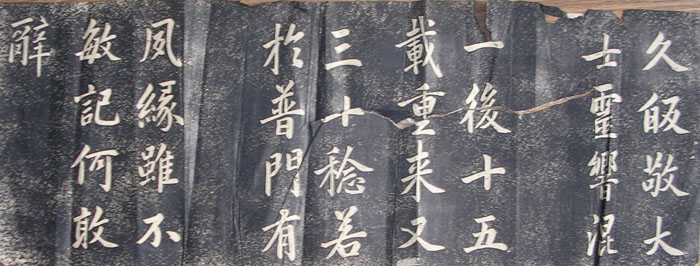 久皈敬大
士霊響混
一後十五
載重来又
三十稔若
於普門有
夙緣雖不
敏記何敢
辭